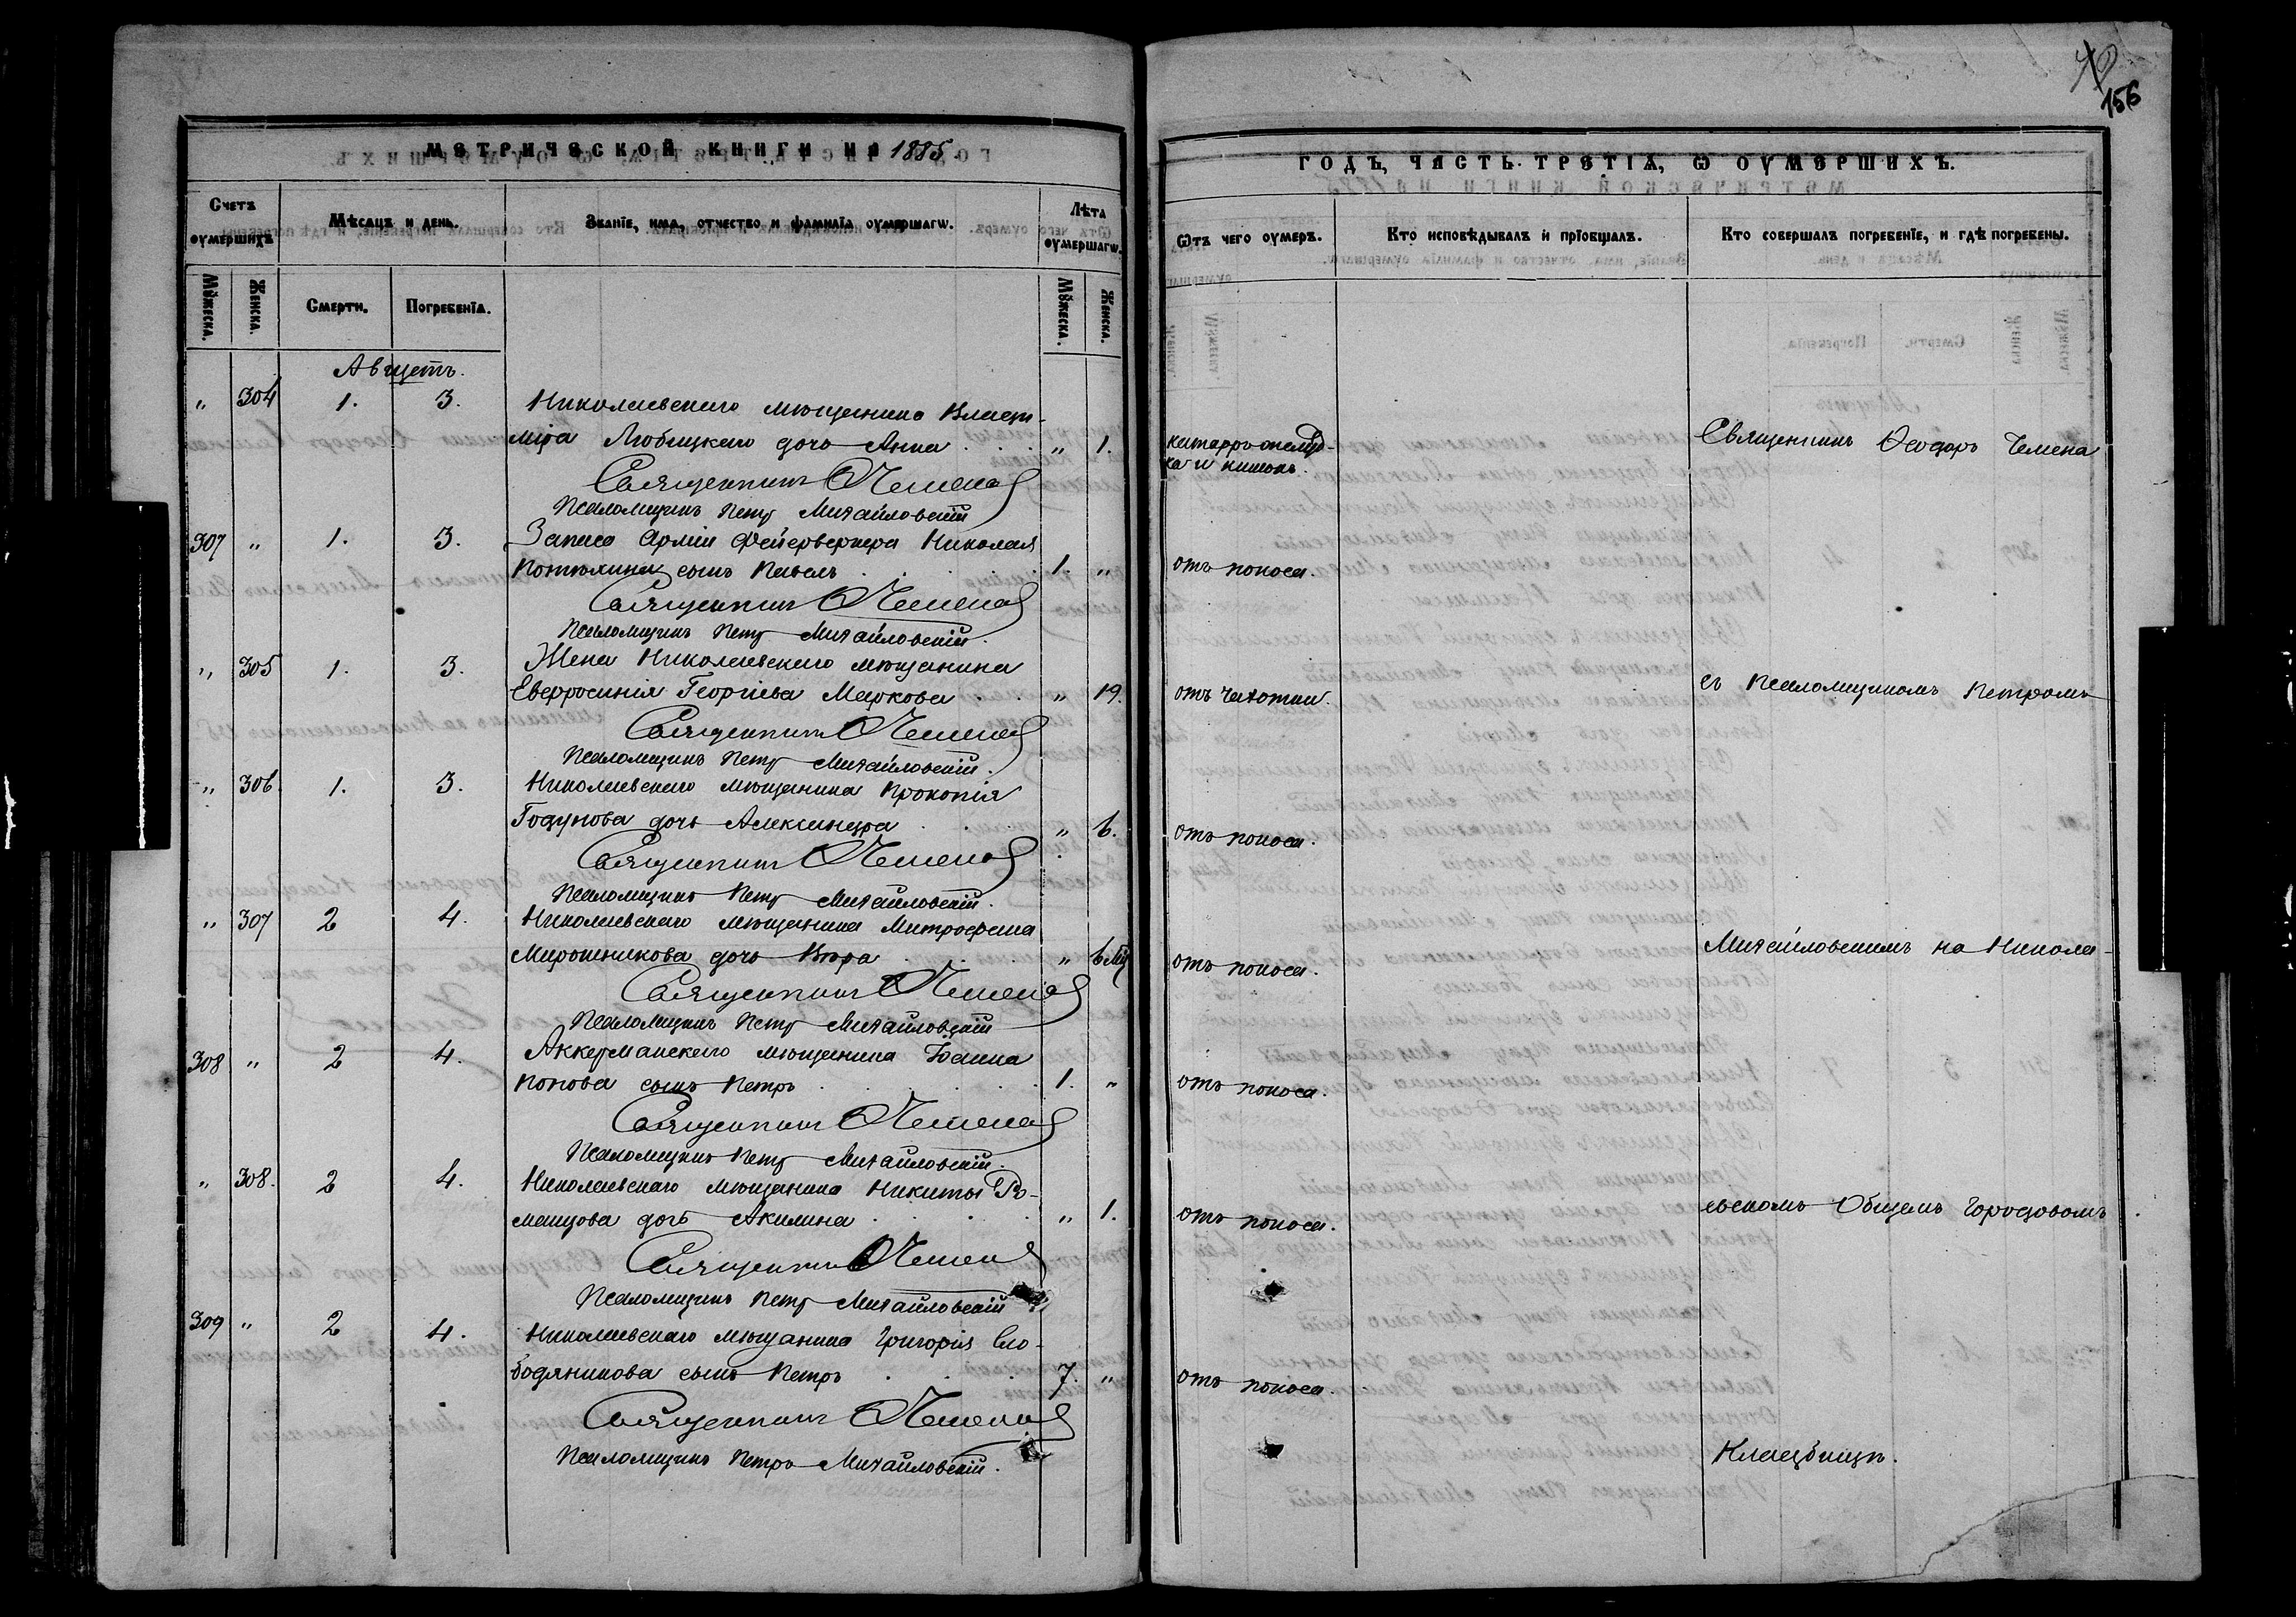 МЕТРИЧЕСКОЙ КНИГИ НА 1885
Счетъ оумершихъ
Мѣсяцъ и день.
Званїе, имѧ, отчество и фамилїа оумершагѡ.
Лѣта оумершагѡ.
Мѹжеска.
Женска.
Смерти.
Погребенїѧ.
Мѹжеска.
Женска.
Августъ.
" 304 1. 3. Николаевскаго мѣщанина Влади-
міра Любицкаго дочь Анна . . . " 1.
Священникъ Ѳ Чемена
Псаломщикъ Петръ Михайловскій
307 " 1. 3. Запаса Арміи Фейерверкера Николая
Потюлина сынъ Павелъ . . . 1. "
Священникъ Ѳ Чемена
Псаломщикъ Петръ Михайловскій.
" 305 1. 3. Жена Николаевскаго мѣщанина
Евфросинія Георгіева Маркова . . " 19.
Священникъ Ѳ Чемена
Псаломщикъ Петръ Михайловскій.
" 306. 1. 3. Николаевскаго мѣщанина Прокопія
Годунова дочь Александра . . . " 6.
Священникъ Ѳ Чемена
Псаломщикъ Петръ Михайловскій.
" 307 2 4. Николаевскаго мѣщанина Митрофана
Мирошникова дочь Вѣра . . . " 6 Мц
Священникъ Ѳ Чемена
Псаломщикъ Петръ Михайловскій
308 " 2 4. Аккерманскаго мѣщанина Іоанна
Попова сынъ Петръ . . . 1. "
Священникъ Ѳ Чемена
Псаломщикъ Петръ Михайловскій.
" 308. 2 4. Николаевскаго мѣщанина Никиты Ро-
манцова дочь Акилина . . . " 1.
Священникъ Ѳ Чемена
Псаломщикъ Петръ Михайловскій
309 " 2 4. Николаевскаго мѣщанина Григорія Сло-
бодяникова сынъ Петръ . . . 7. "
Священникъ Ѳ Чемена
Псаломщикъ Петръ Михайловскій.
156
ГОДЪ, ЧАСТЬ ТРЕТІѦ, Ѡ ОУМЕРШИХЪ.
Ѿтъ чего оумеръ.
Кто исповѣдывалъ и прїобщалъ.
Кто совершалъ погребенїе, и гдѣ погребены.
катарръ желуд-
ка и кишокъ.
Священникъ Ѳеодоръ Чемена
отъ поноса.
отъ чахотки.
съ Псаломщикомъ Петромъ
отъ поноса.
отъ поноса.
Михайловскимъ на Никола-
отъ поноса.
отъ поноса.
евскомъ Общемъ Городовомъ
отъ поноса.
Кладбищѣ.